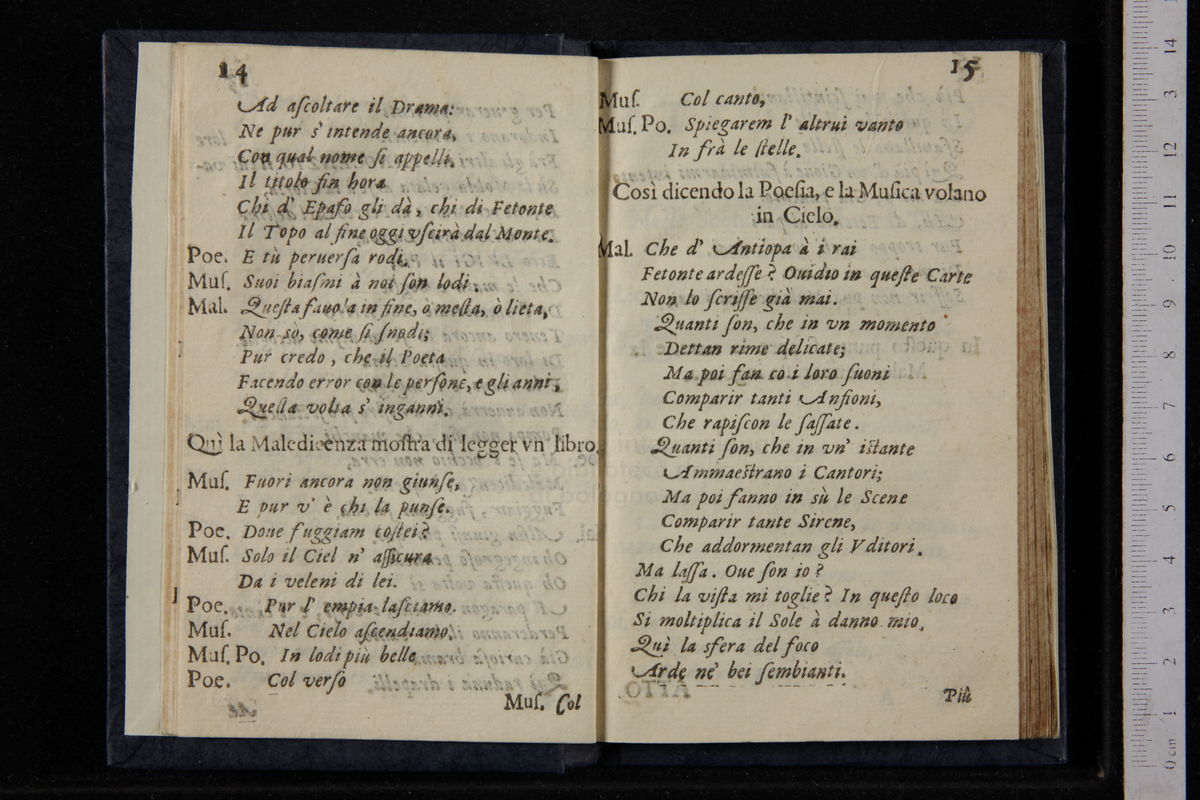 14
Ad aſcoltare il Drama:
Ne pur s' intende ancora,
Con qual nome ſi appelli,
Il titolo fin hora
Chi d' Epafo gli dà, chi di Fetonte
Il Topo al fine oggi vſcirà dal Monte.
Poe. E tù peruerſa rodi.
Muſ. Suoi biaſmi à noi ſon lodi.
Mal. Queſta fauola in fine, ò meſta, ò lieta,
Non sò, come ſi ſnodi;
Pur credo, che il Poeta
Facendo error con le perſone, e gli anni,
Queſta volta s' inganni.
Quì la Maledicenza moſtra di legger vn libro.
Muſ. Fuori ancora non giunſe,
E pur v' è chi la punſe.
Poe. Doue fuggiam coſtei?
Muſ. Solo il Ciel n' aſſicura
Da i veleni di lei.
Poe. Pur l' empia laſciamo.
Muſ. Nel Cielo aſcendiamo.
Muſ. Po. In lodi più belle
Poe. Col verſo
Muſ. Col
15
Muſ. Col canto,
Muſ. Po. Spiegarem l' altrui vanto
In frà le ſtelle.
Così dicendo la Poeſia, e la Muſica volano
in Cielo.
Mal. Che d' Antiopa à i rai
Fetonte ardeſſe? Ouidio in queſte Carte
Non lo ſcriſſe già mai.
Quanti ſon, che in vn momento
Dettan rime delicate;
Ma poi fan co i loro ſuoni
Comparir tanti Anfioni,
Che rapiſcon le ſaſſate.
Quanti ſon, che in vn' iſtante
Ammaeſtrano i Cantori;
Ma poi fanno in sù le Scene
Comparir tante Sirene,
Che addormentan gli Vditori.
Ma laſſa. Oue ſon io?
Chi la viſta mi toglie? In queſto loco
Si moltiplica il Sole à danno mio.
Quì la sfera del foco
Arde ne' bei ſembianti.
Più